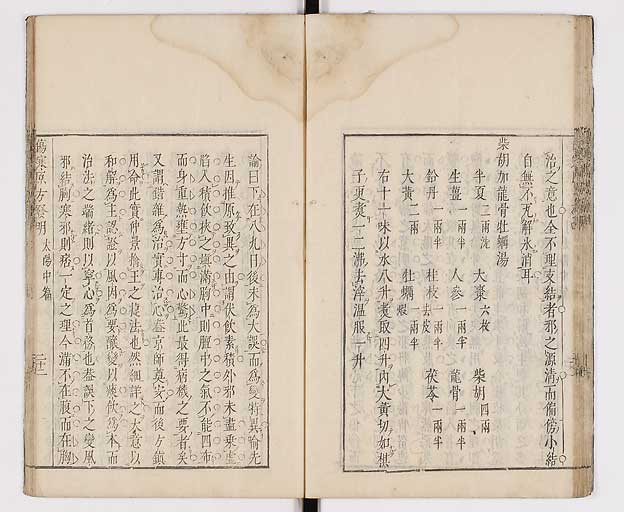 治之意也全不理支結者邪之源清而偏傍小結
自無不瓦解氷消耳
柴胡加龍骨牡蠣湯
半夏二兩洗 大棗六枚 柴胡四兩
生薑一兩半 人參一兩半 龍骨一兩半
鉛丹一兩半 桂枝去皮一兩半 茯苓一兩半
大黃二兩 牡蠣煆一兩半
右十一味以水八升煮取四升內大黃切如棋
子更煮一二沸去滓溫服一升
論曰下在八九日後未為大誤而為變特異喻先
生因推原致異之由謂伏飲素積外邪未盡乘虛
陷入積飲挾之填滿胸中則膻中之氣不能四布
而身重無主方寸而心驚此最得病機之要者矣
又謂譫語為治實專治心蓋京師奠安而後方鎮
用命此實仲景搶王之捷法也然細詳之大意以
和解為主認證以風因為要釀變以痰飲為本而
治法之端緒則以寧心為首務也蓋誤下之變風
邪結胸寒邪則痞一定之理今滿不在腹而在胸
傷寒原方發明 太陽中篇 二十二